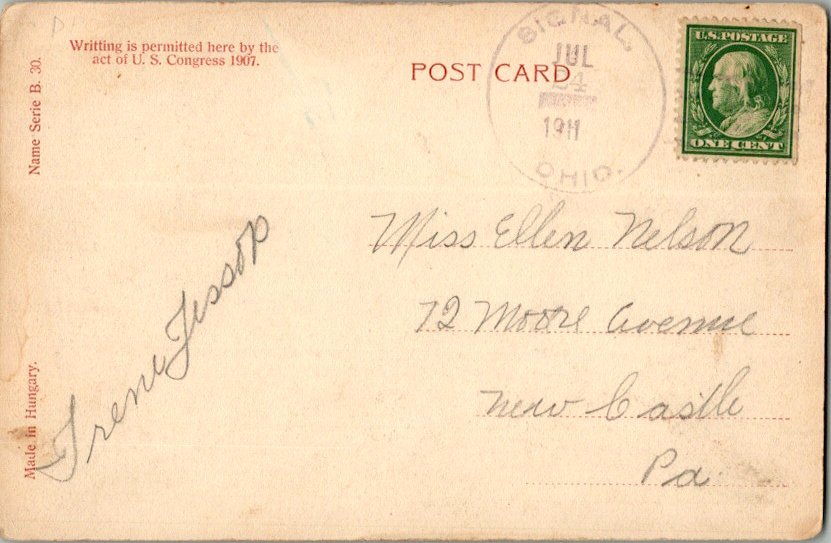 Writting is permitted here by the
act of U. S. Congress 1907.
POST CARD
SIGNAL,
JUL
24
1911
OHIO.
U.S. POSTAGE
ONE CENT
Name Serie B. 30.
Made in Hungary.
Irene Jessop
Miss Ellen Nelson
72 Moore Avenue
New Castle
Pa.